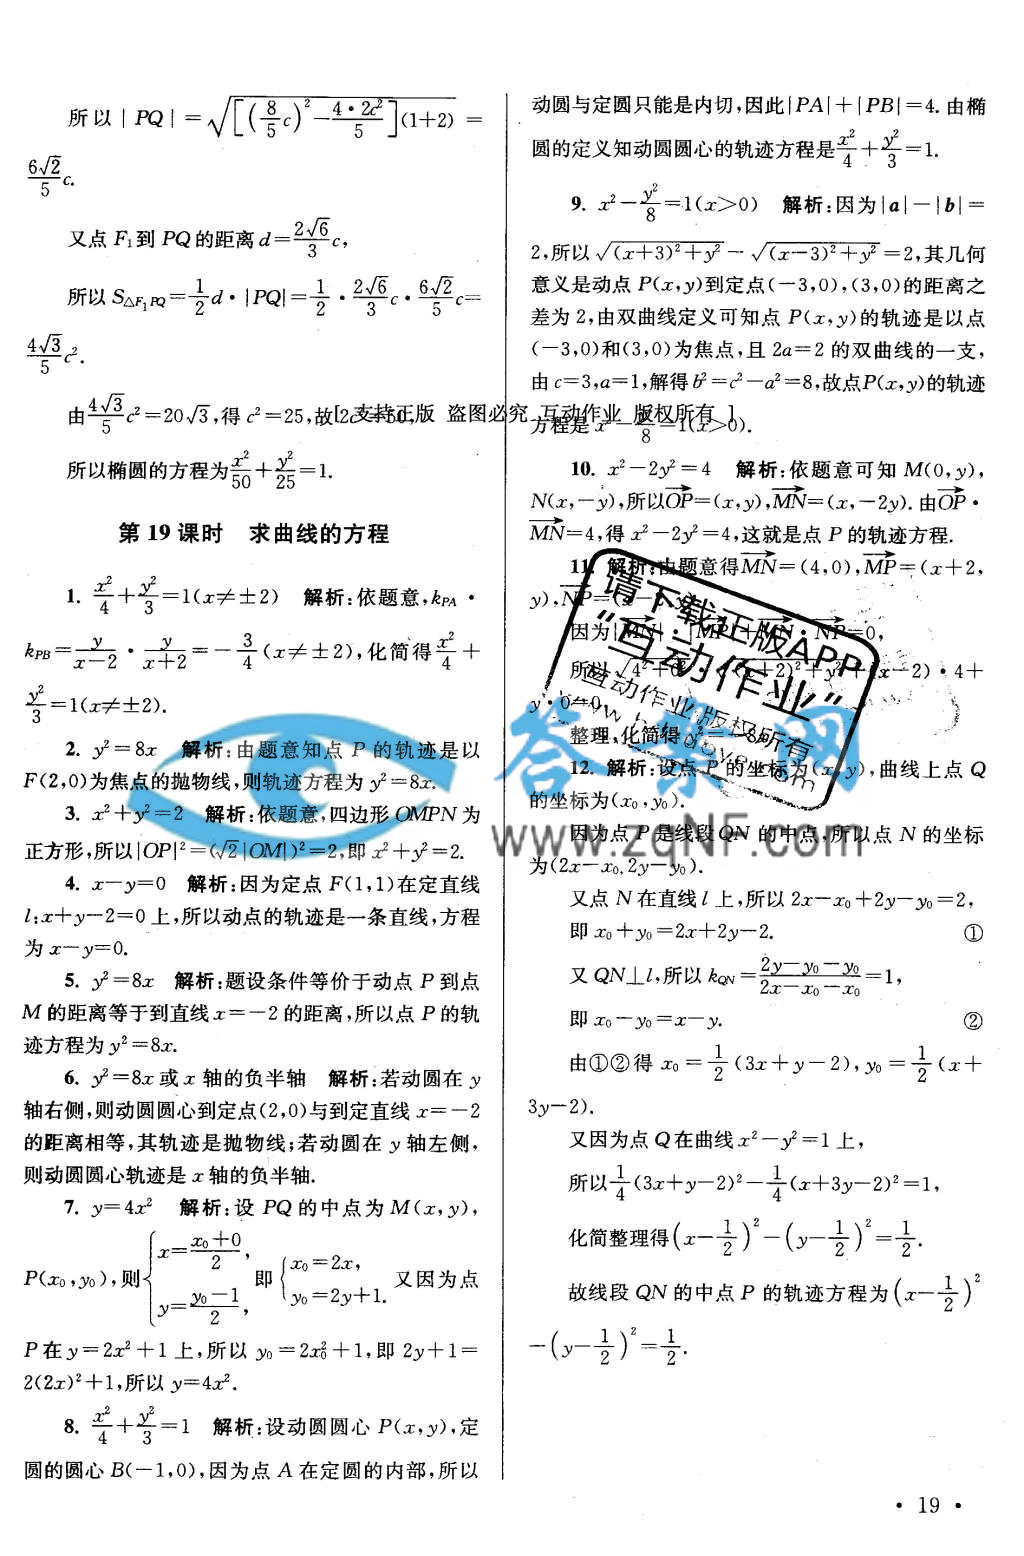 所以|PQ|=√{[(8/5 c)²-4·2c²/5](1+2)}=
6√2/5 c.
又点 F₁到 PQ 的距离 d=2√6/3 c,
所以 S△F₁PQ=1/2 d·|PQ|=1/2·2√6/3 c·6√2/5 c=
4√3/5 c².
由4√3/5 c²=20√3,得 c²=25,故2c²=50,
所以椭圆的方程为x²/50+y²/25=1.
第 19 课时 求曲线的方程
1. x²/4+y²/3=1(x≠±2) 解析:依题意,kPA·
kPB=y/(x-2)·y/(x+2)=-3/4(x≠±2),化简得x²/4+
y²/3=1(x≠±2).
2. y²=8x 解析:由题意知点 P 的轨迹是以
F(2,0)为焦点的抛物线,则轨迹方程为 y²=8x.
3. x²+y²=2 解析:依题意,四边形 OMPN 为
正方形,所以|OP|²=(√2|OM|)²=2,即 x²+y²=2.
4. x-y=0 解析:因为定点 F(1,1)在定直线
l:x+y-2=0 上,所以动点的轨迹是一条直线,方程
为 x-y=0.
5. y²=8x 解析:题设条件等价于动点 P 到点
M 的距离等于到直线 x=-2 的距离,所以点 P 的轨
迹方程为 y²=8x.
6. y²=8x 或 x 轴的负半轴 解析:若动圆在 y
轴右侧,则动圆圆心到定点(2,0)与到定直线 x=-2
的距离相等,其轨迹是抛物线;若动圆在 y 轴左侧,
则动圆圆心轨迹是 x 轴的负半轴.
7. y=4x² 解析:设 PQ 的中点为 M(x,y),
P(x₀,y₀),则{x=(x₀+0)/2, y=(y₀-1)/2, 即{x₀=2x, y₀=2y+1. 又因为点
P 在 y=2x²+1 上,所以 y₀=2x₀²+1,即 2y+1=
2(2x)²+1,所以 y=4x².
8. x²/4+y²/3=1 解析:设动圆圆心 P(x,y),定
圆的圆心 B(-1,0),因为点 A 在定圆的内部,所以
动圆与定圆只能是内切,因此|PA|+|PB|=4.由椭
圆的定义知动圆圆心的轨迹方程是x²/4+y²/3=1.
9. x²-y²/8=1(x>0) 解析:因为|a|-|b|=
2,所以√((x+3)²+y²)-√((x-3)²+y²)=2,其几何
意义是动点 P(x,y)到定点(-3,0),(3,0)的距离之
差为 2,由双曲线定义可知点 P(x,y)的轨迹是以点
(-3,0)和(3,0)为焦点,且 2a=2 的双曲线的一支,
由 c=3,a=1,解得 b²=c²-a²=8,故点P(x,y)的轨迹
方程是 x²-y²/8=1(x>0).
[ 支持正版 盗图必究 互动作业 版权所有 ]
10. x²-2y²=4 解析:依题意可知 M(0,y),
N(x,-y),所以OP→=(x,y),MN→=(x,-2y).由OP→·
MN→=4,得 x²-2y²=4,这就是点 P 的轨迹方程.
11. 解析:由题意得MN→=(4,0),MP→=(x+2,
y),NP→=
因为|MN→|·|MP→|+MN→·NP→=0,
所以√(4²+0²)·√((x+2)²+y²)+(x-2)·4+
y·0=0,
整理,化简得 y²=-8x.
12. 解析:设点 P 的坐标为(x,y),曲线上点 Q
的坐标为(x₀,y₀).
因为点 P 是线段 QN 的中点,所以点 N 的坐标
为(2x-x₀,2y-y₀).
又点 N 在直线 l 上,所以 2x-x₀+2y-y₀=2,
即 x₀+y₀=2x+2y-2. ①
又 QN⊥l,所以 kQN=(2y-y₀-y₀)/(2x-x₀-x₀)=1,
即 x₀-y₀=x-y. ②
由①②得 x₀=1/2(3x+y-2),y₀=1/2(x+
3y-2).
又因为点 Q 在曲线 x²-y²=1 上,
所以1/4(3x+y-2)²-1/4(x+3y-2)²=1,
化简整理得(x-1/2)²-(y-1/2)²=1/2.
故线段 QN 的中点 P 的轨迹方程为(x-1/2)²
-(y-1/2)²=1/2.
请下载正版APP
"互动作业"
互动作业版权所有
答案网
www.zqNF.com
· 19 ·